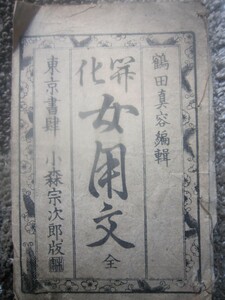 鶴田真容編輯
開化
女用文
全
東京書肆 小森宗次郎版